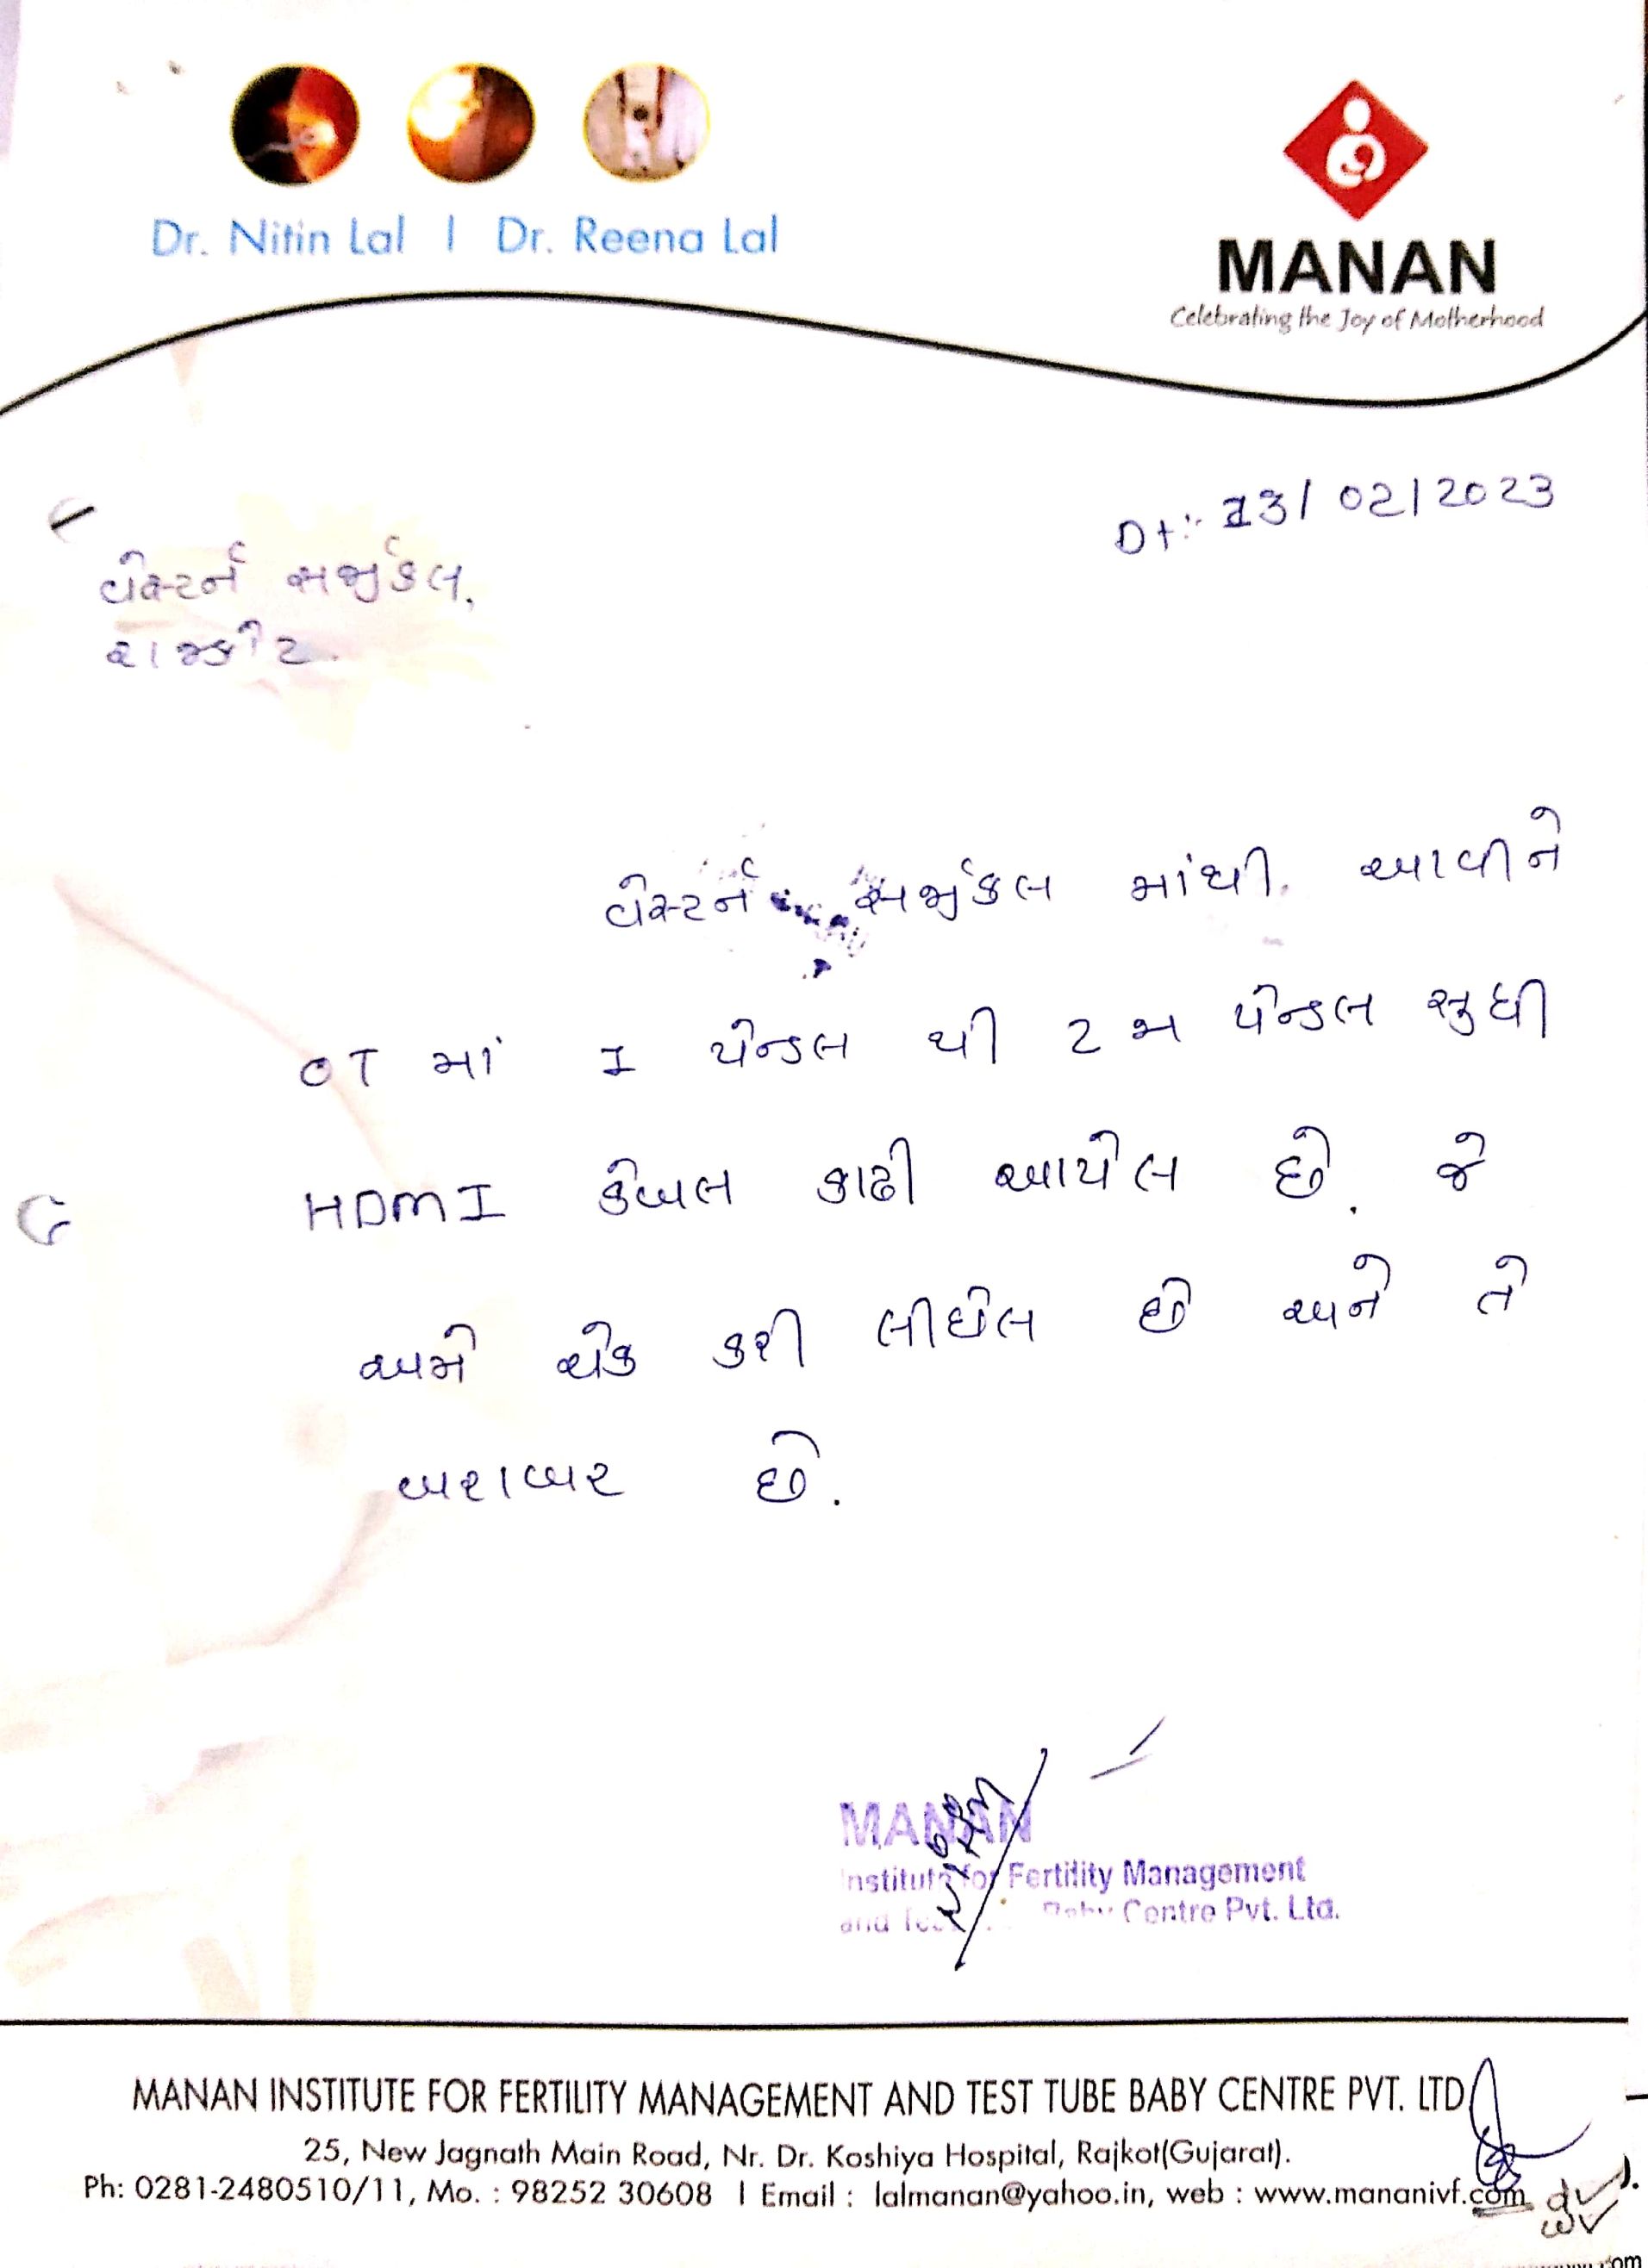 Dr. Nitin Lal | Dr. Reena Lal
MANAN
Celebrating the Joy of Motherhood
Dt:- 13/02/2023
વેસ્ટર્ન સર્જીકલ,
રાજકોટ.
વેસ્ટર્ન સર્જીકલ માંથી આવીને
OT માં I પેન્ડલ થી 2 જા પેન્ડલ સુધી
HDMI કેબલ કાઢી આપેલ છે. જે
અમે ચેક કરી લીધેલ છે અને તે
બરાબર છે.
MANAN
Institute for Fertility Management
and Baby Centre Pvt. Ltd.
MANAN INSTITUTE FOR FERTILITY MANAGEMENT AND TEST TUBE BABY CENTRE PVT. LTD
25, New Jagnath Main Road, Nr. Dr. Koshiya Hospital, Rajkot(Gujarat).
Ph: 0281-2480510/11, Mo. : 98252 30608 | Email : lalmanan@yahoo.in, web : www.mananivf.com